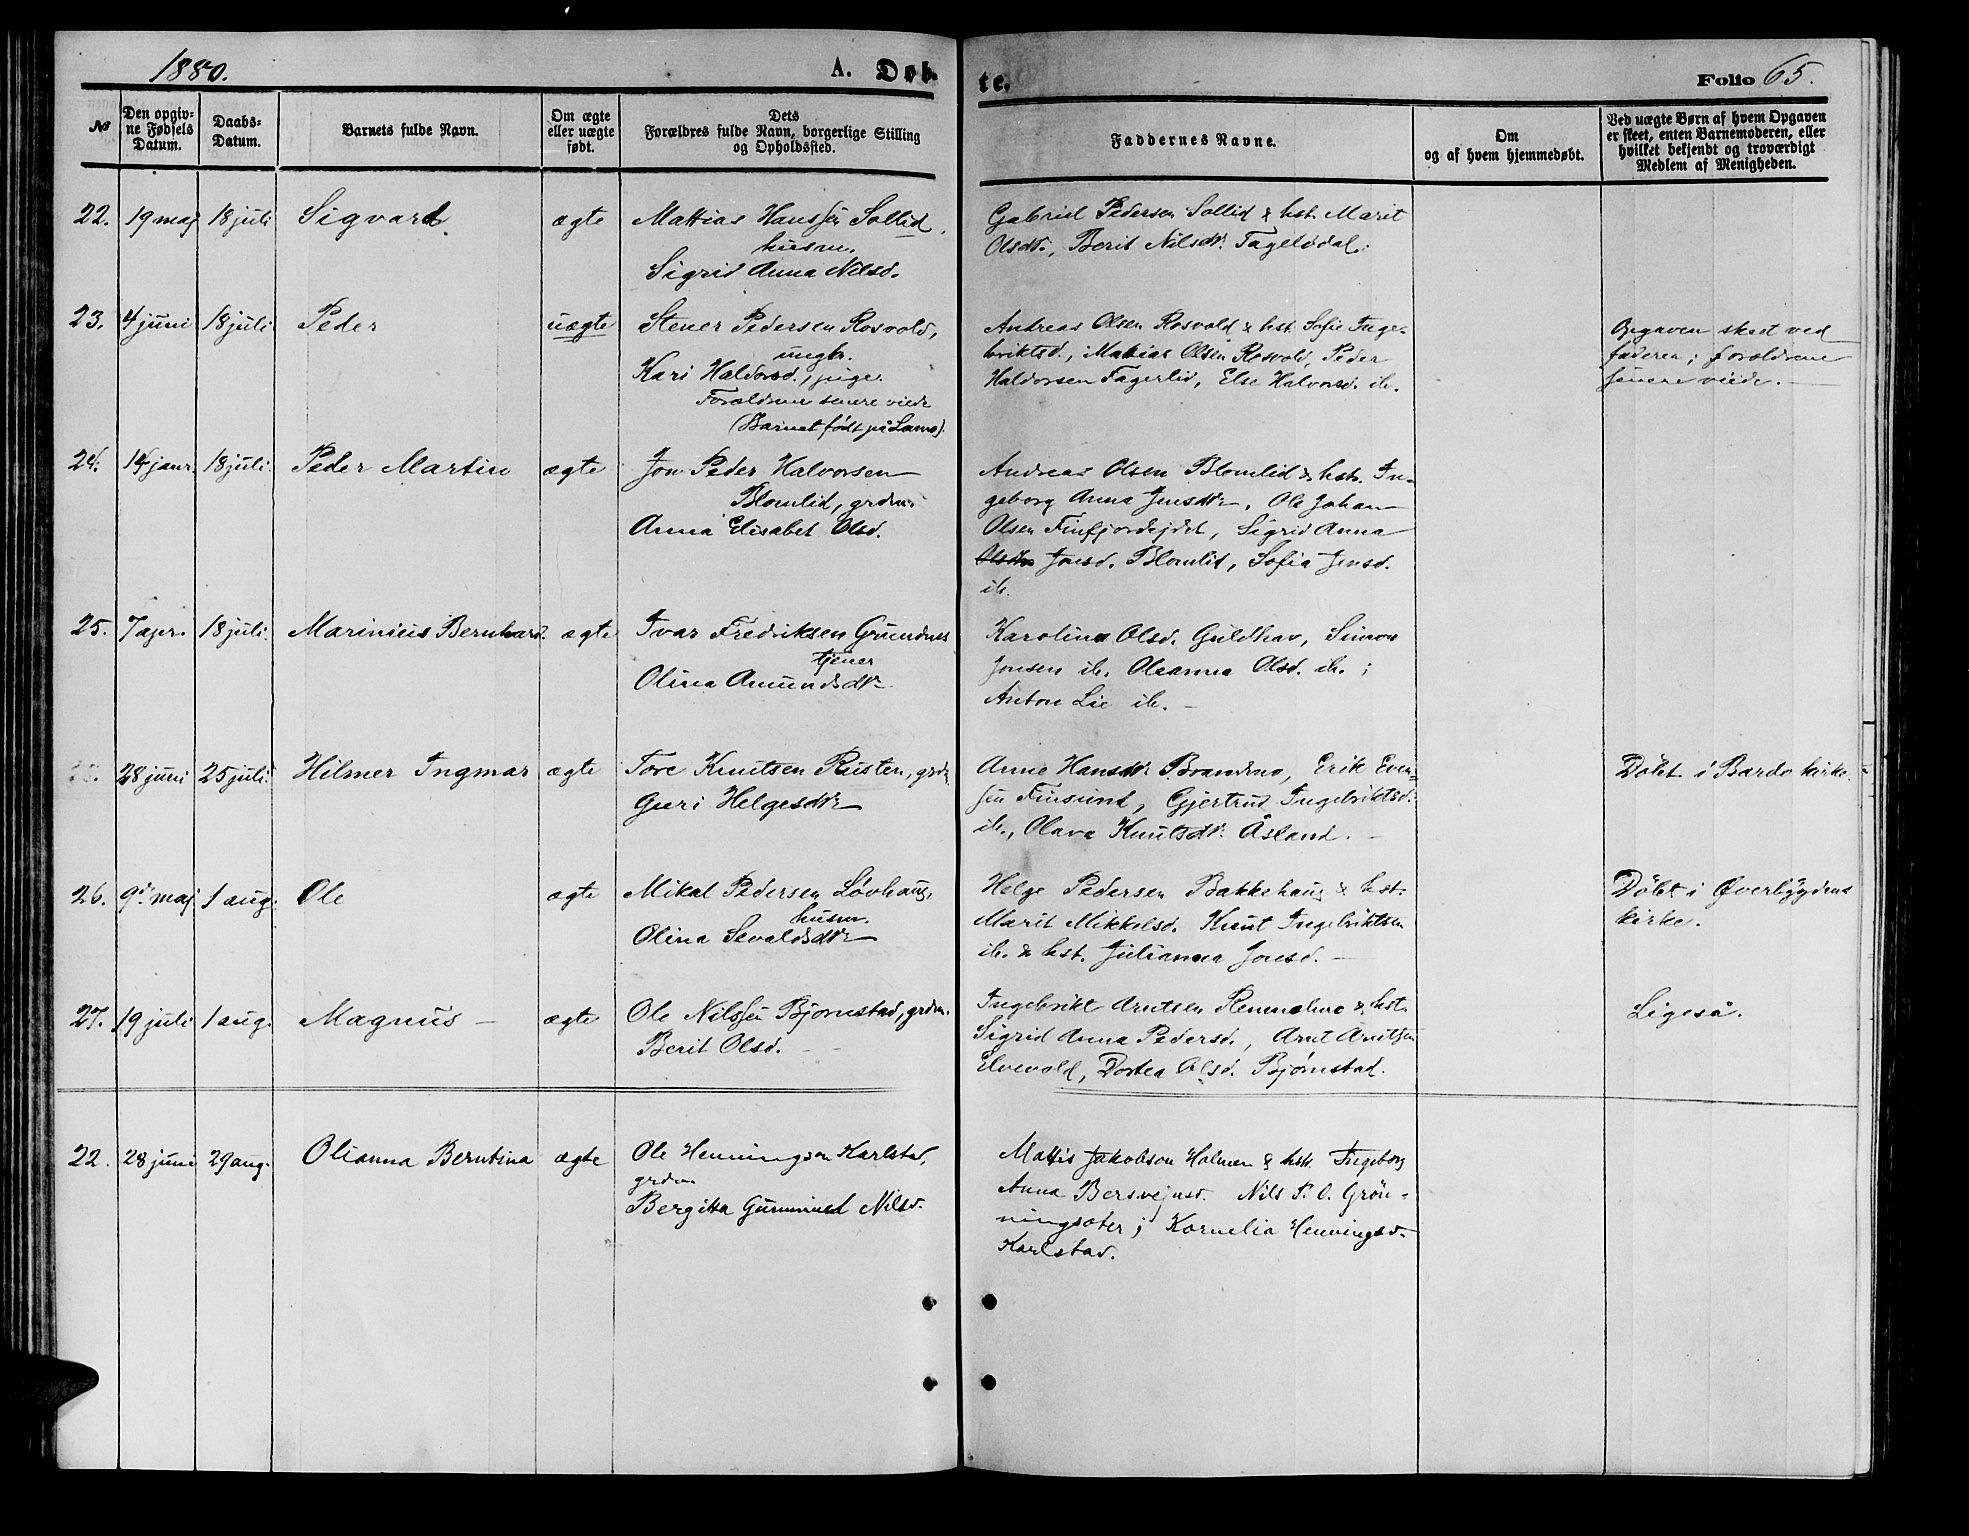 1880.
A. Døb-
te.
Folio 65.
No
Den opgiv-
ne Fødsels
Datum.
Daabs-
Datum.
Barnets fulde Navn.
Om ægte
eller uægte
født.
Dets
Forældres fulde Navn, borgerlige Stilling
og Opholdssted.
Faddernes Navne.
Om
og af hvem hjemmedøbt.
Ved uægte Børn af hvem Opgaven
er skeet, enten Barnemoderen, eller
hvilket bekjendt og troværdigt
Medlem af Menigheden.
22. 19 maj 18 juli Sigvard. ægte
Mattias Hanssen Sollid,
husm.
Sigrid Anna Nilsd.
Gabriel Pedersen Sollid & hst. Marit
Olsdtr., Berit Nilsdtr. Fagelidal.
23. 4 juni 18 juli Peder uægte
Stener Pedersen Rosvold,
ungk.
Kari Haldorsd., pige.
Forældrene senere viede
(Barnet født på).
Andreas Olsen Rosvold & hst. Sofie Inge-
briktsd., Matias Olsen Rosvold, Peder
Haldorsen Fagerlid, Else Halvorsd. ib.
Opgaven skeet ved
faderen; forældrene
senere viede.
24. 14 janr. 18 juli. Peder Martin ægte
Jon Peder Halvorsen
Blomlid, grdm.
Anna Elisabet Olsd.
Andreas Olsen Blomlid & hstr. In-
geborg Anna Jensdtr., Ole Johan
Olsen Finfjordejdet, Sigrid Anna
Olsdtr Jonsd. Blomlid, Sofia Jensd.
ib.
25. 7 apr. 18 juli. Marinius Bernhard. ægte
Ivar Fredriksen Grundnes
tjener
Olina Amundsdtr
Karolina Olsd. Guldhav, Simon
Jonsen ib. Oleanna Olsd. ib.;
Anton Lie ib.
28 juni 25 juli Hilmer Ingmar ægte
Tore Knutsen Rusten, grdm
Guri Helgesdtr
Anne Hansdtr Brandmo, Erik Even-
sen Finsund, Gjertrud Ingebriktsd.
ib., Olava Knutsdtr. Åsland.
Döbt i Bardo kirke.
26. 9. maj 1 aug. Ole ægte
Mikal Pedersen Løvhaug,
husm.
Olina Sevaldsdtr
Helge Pedersen Bakkehaug & hst.
Marit Mikkelsd. Knut Ingebriktsen
ib. & hst. Julianna Jonsd.
Döbt i Øverbygdens
kirke.
27. 19 juli 1 aug. Magnus ægte
Ole Nilssen Bjørnstad, grdm.
Berit Olsd.
Ingebrikt Arntsen Rennalmo & hst.
Sigrid Anna Pedersd., Arnt Arntsen
Elvevold, Dortea Olsd. Bjørnstad.
Ligeså.
22. 28 juni 29 aug. Olianna Berntina ægte
Ole Henningsen Karlstad,
grdm.
Bergitta Gunnild Nilsd.
Mattis Jakobson Holmen & hstr. Ingeborg
Anna Bersvejnsd. Nils P. O. Grön-
ningsæter; Kornelia Henningsd.
Karlstad.